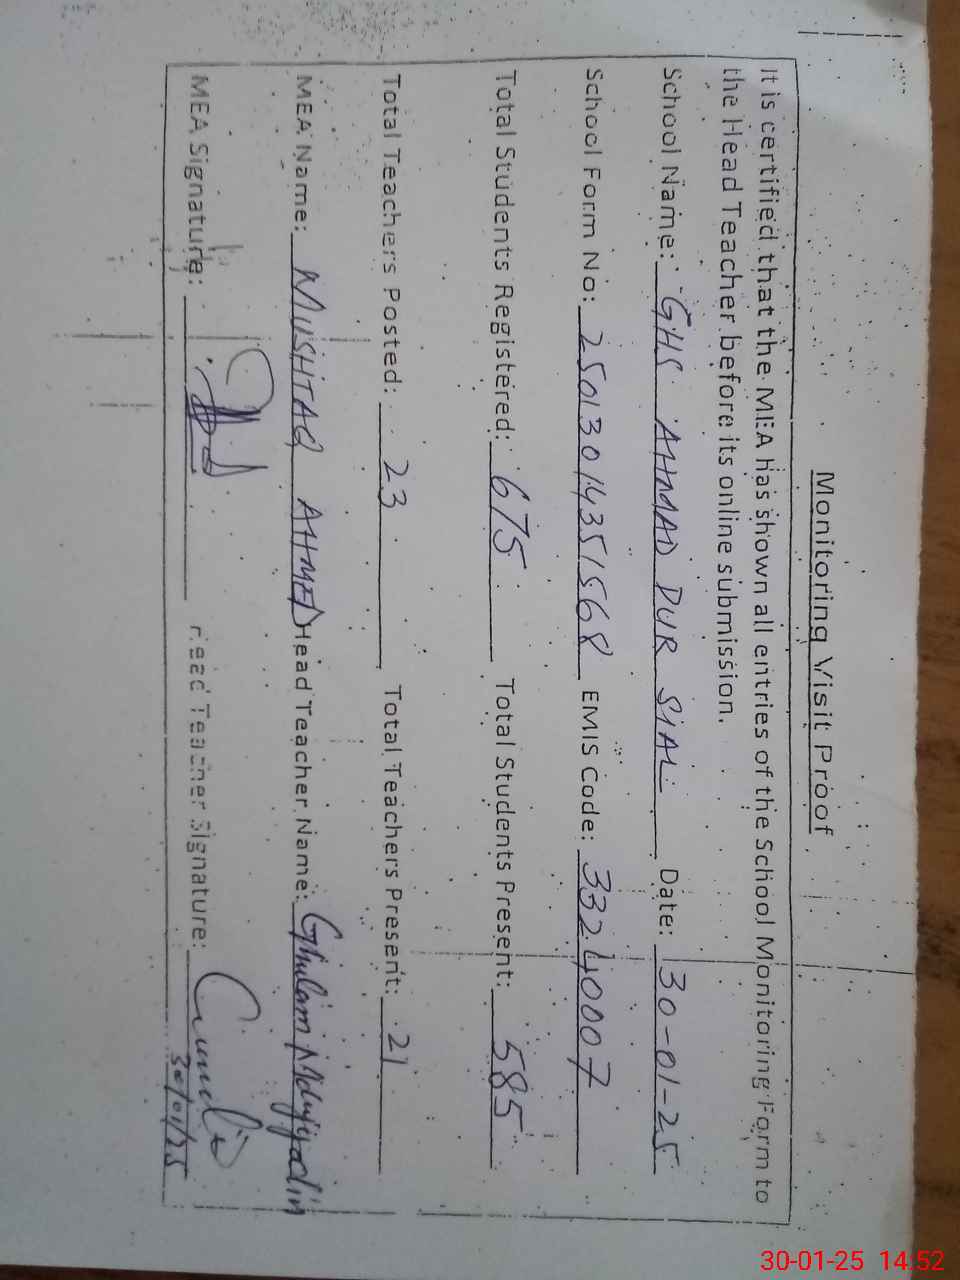 Monitoring Visit Proof
It is certified that the MEA has shown all entries of the School Monitoring Form to
the Head Teacher before its online submission.
School Name: GHS AHMAD PUR SIAL Date: 30-01-25
School Form No: 25013014351568 EMIS Code: 33240007
Total Students Registered: 675 Total Students Present: 585
Total Teachers Posted: 23 Total Teachers Present: 21
MEA Name: MUSHTAQ AHMED Head Teacher Name: Ghulam Mohyiyodin
MEA Signature: Head Teacher Signature:
30/01/25
30-01-25 14:52